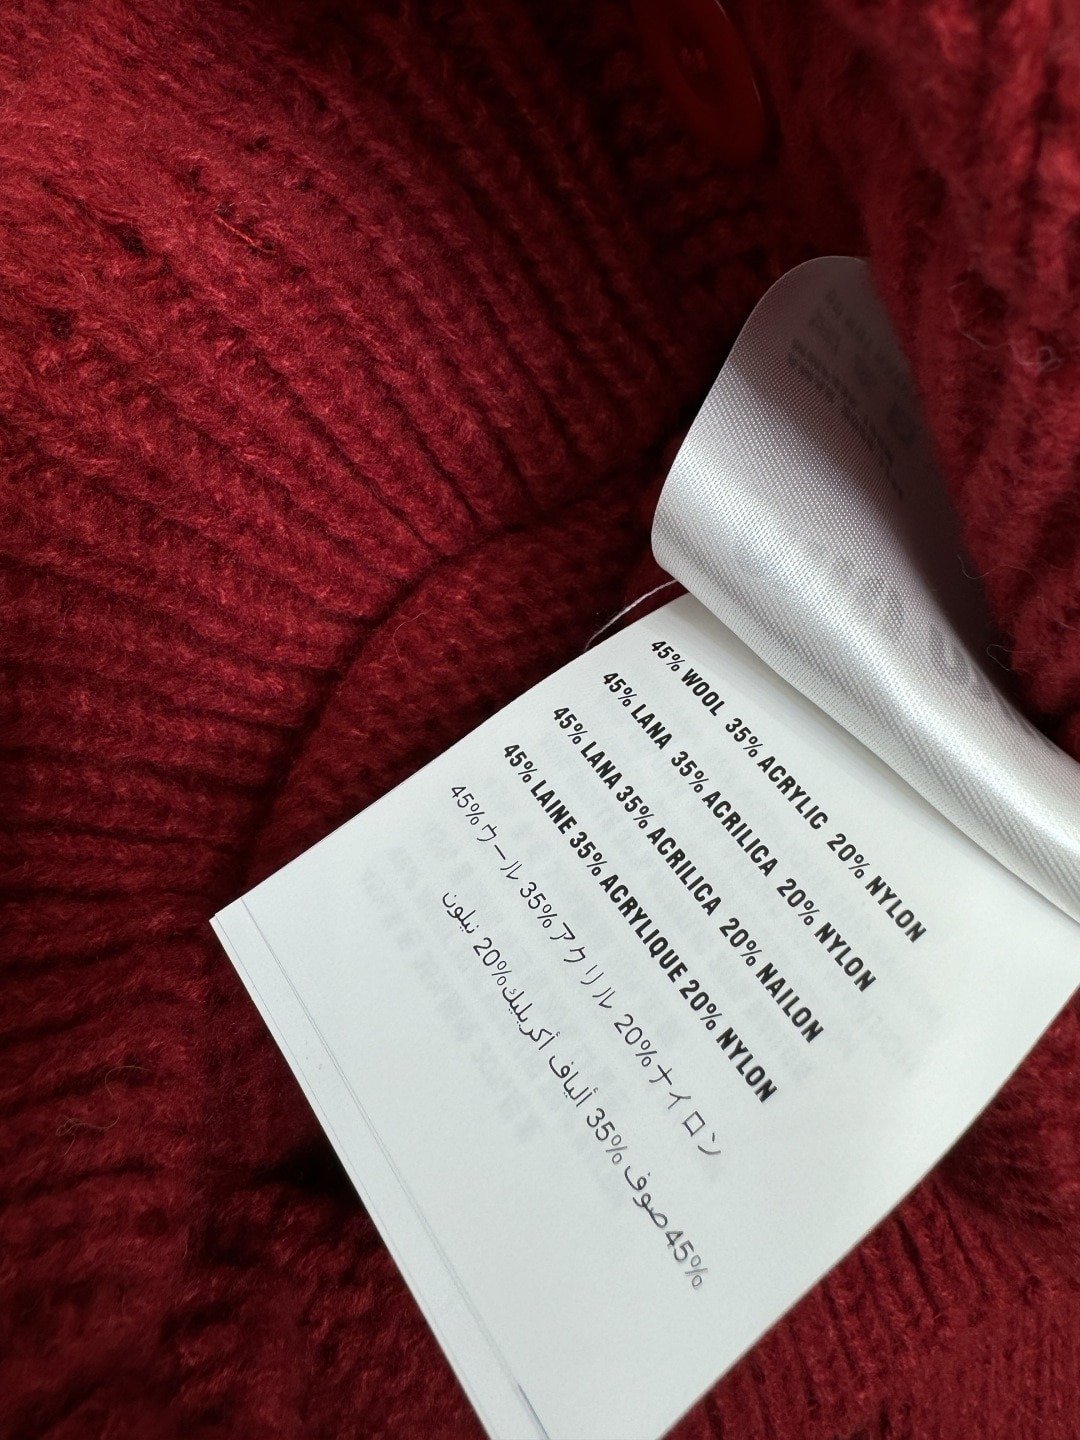 45% WOOL 35% ACRYLIC 20% NYLON
45% LANA 35% ACRILICA 20% NYLON
45% LANA 35% ACRILICA 20% NAILON
45% LAINE 35% ACRYLIQUE 20% NYLON
45%ウール 35%アクリル 20%ナイロン
45%صوف 35% ألياف أكريليك20% نيلون